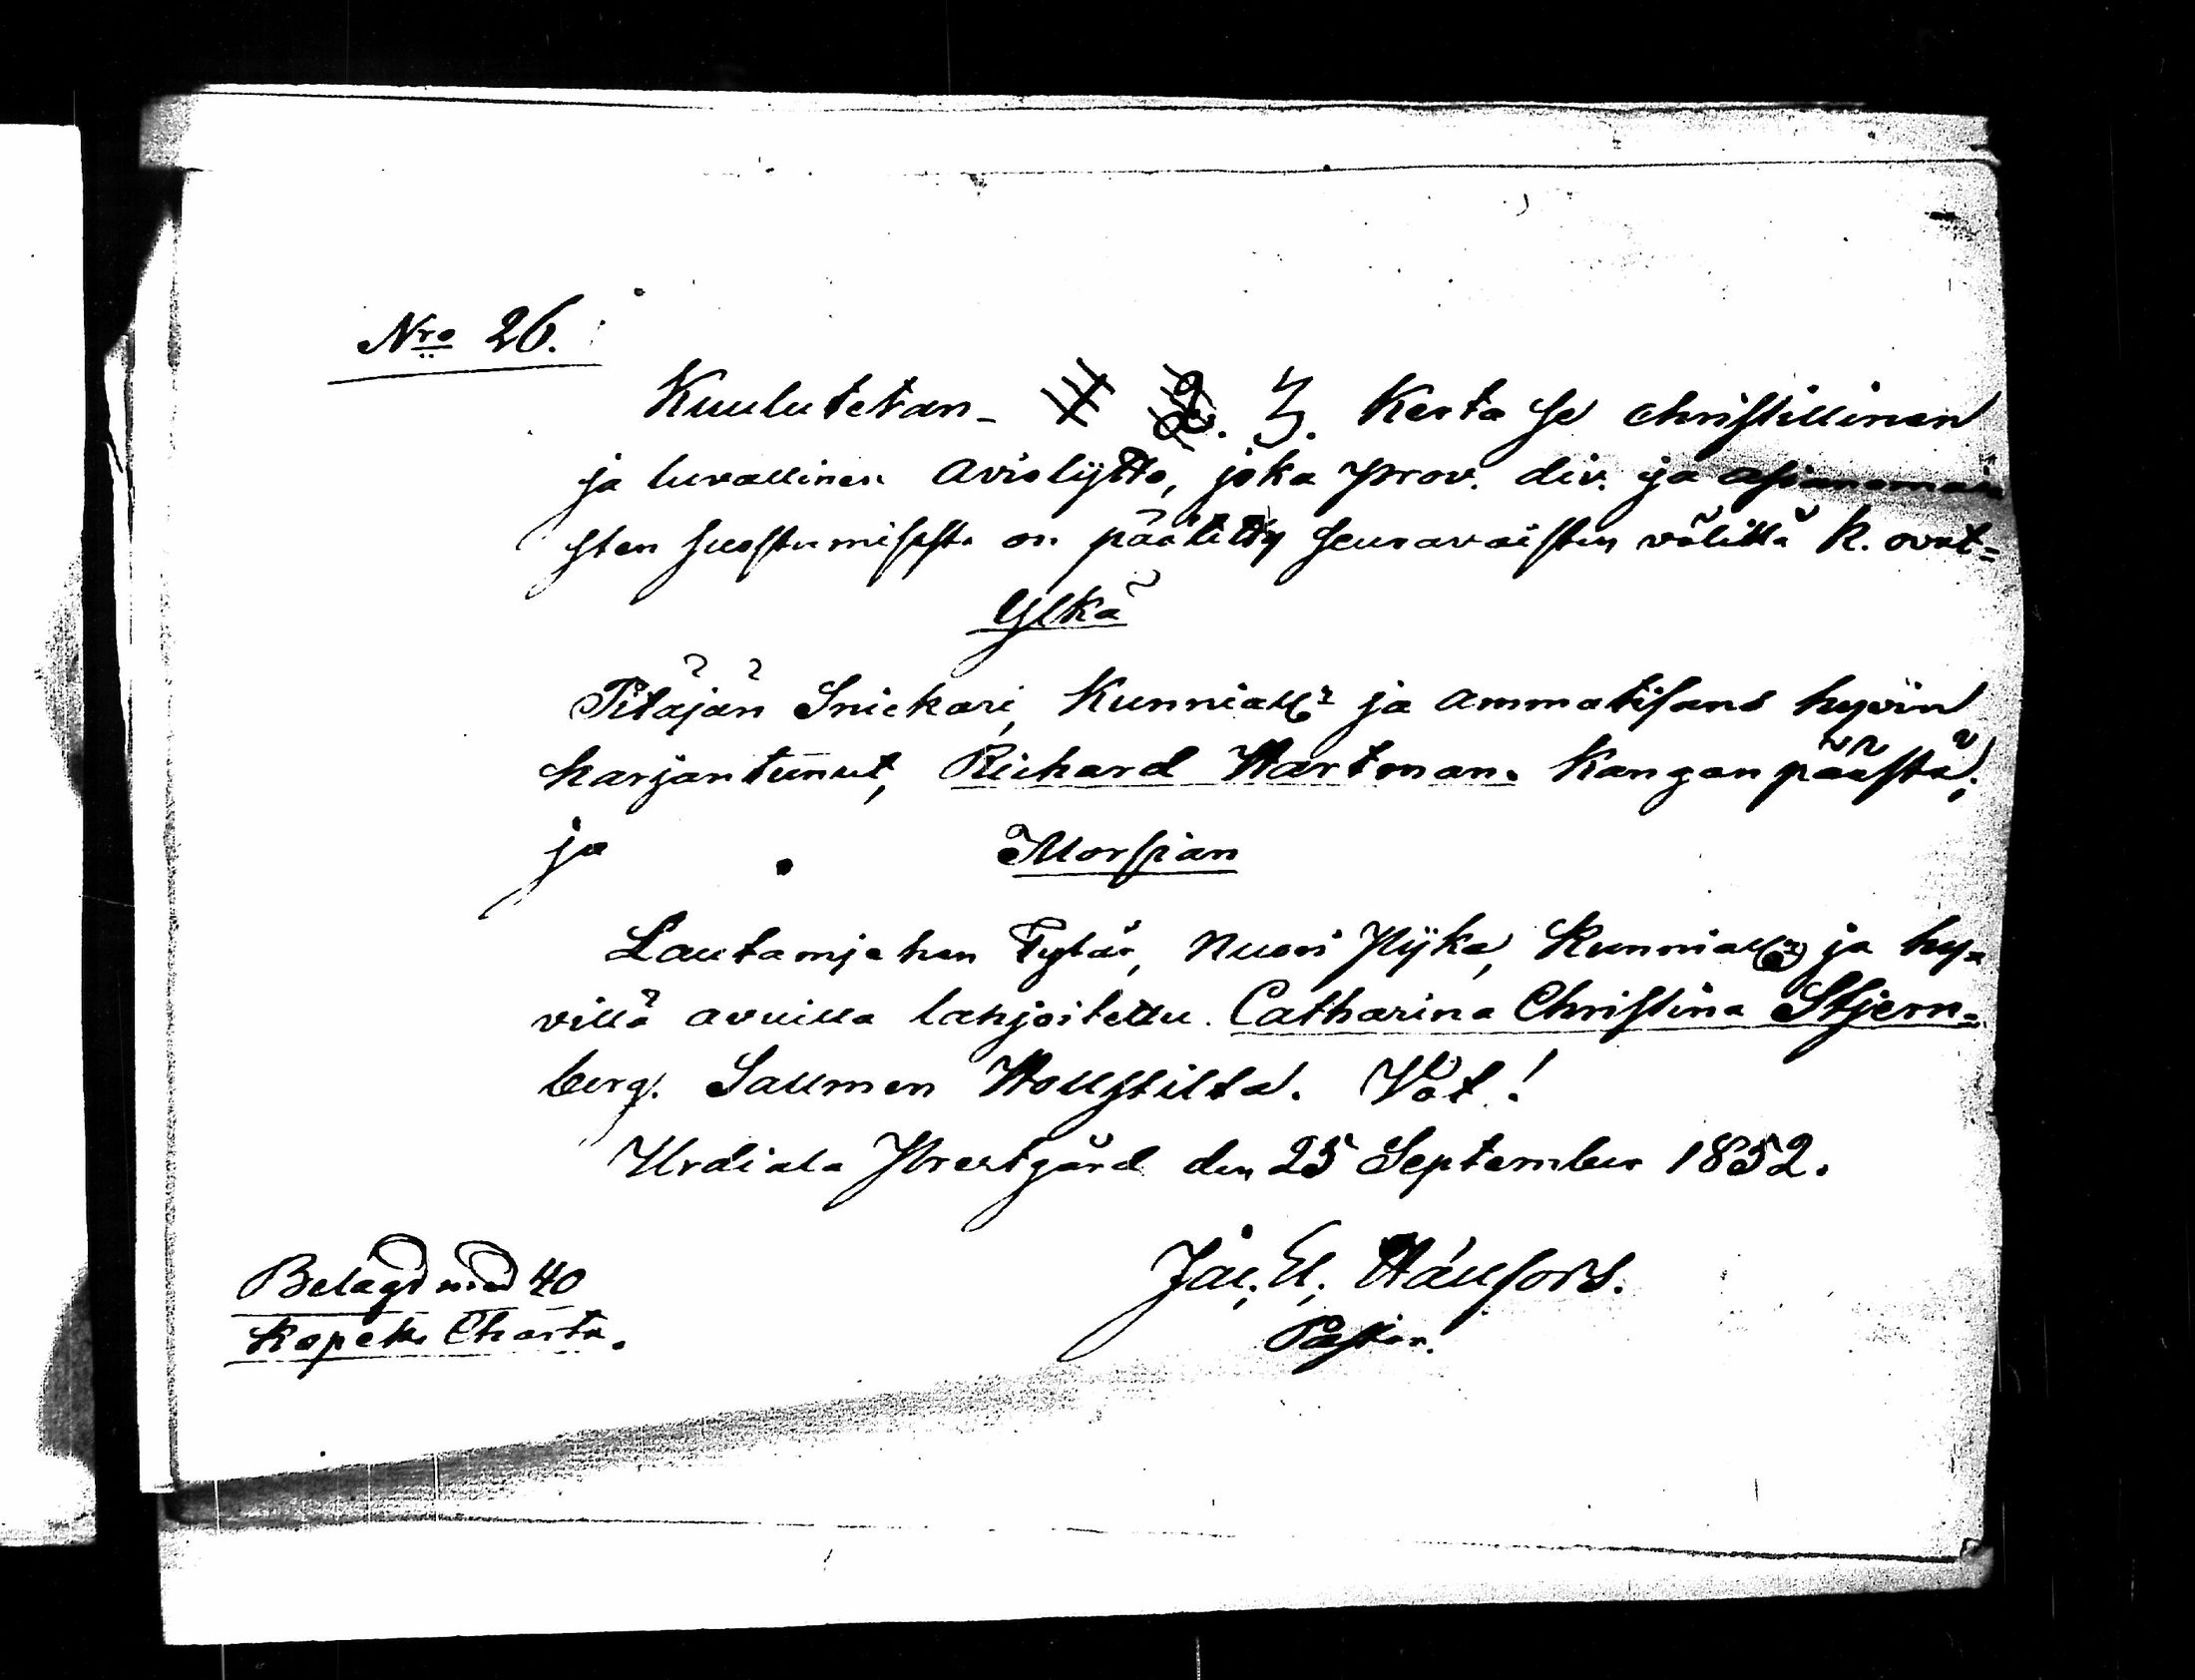 Nro 26.
Kuulutetan - 2. 3. Kerta se christillinen
ja luvallinen aviolijtto, joka prov. div. ja asianomais
sten suostumisesta on päätetty seuravaisten välillä k. ovat=
Ylkä
Pitäjän Snickari, Kunniall: ja ammatisans hyvin
harjantunut, Richard Hartman. Kangan päästä;
ja Morsian
Lautamjehen Tytär, Nuori Pijka, Kunniall: ja hy=
villä avuilla lahjoitettu Catharina Christina Stjern=
berg. Salmen Hollstilta. Vot!
Urdiala Prestgård den 25 September 1852.
Jac. El. Hällfors.
Pastor.
Belagd med 40
Kopek Charta.